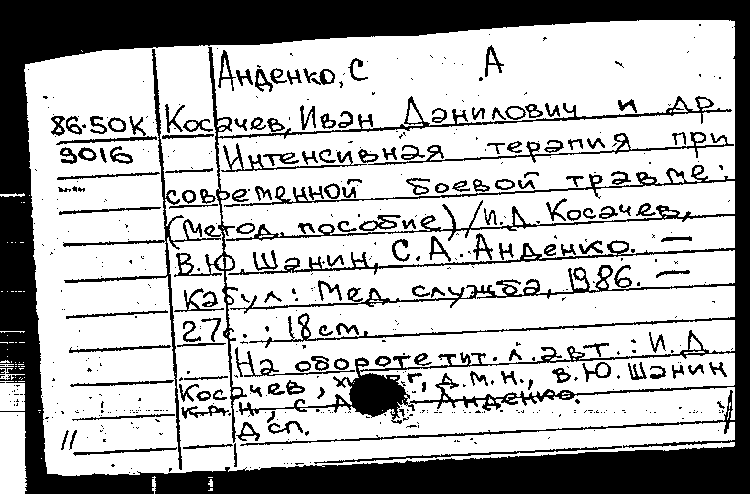 Анденко, С А
86-50К Косачев, Иван Данилович и др.
9016 Интенсивная терапия при
современной боевой травме:
(Метод. пособие) / И.Д. Косачев,
В.Ю. Шанин, С.А. Анденко. —
Кабул: Мед. служба, 1986. —
27с. ; 18 см.
На обороте тит. л. авт. : И.Д.
Косачев, д.м.н., В.Ю. Шанин
к.м.н., С. А Анденко.
11 Дсп.